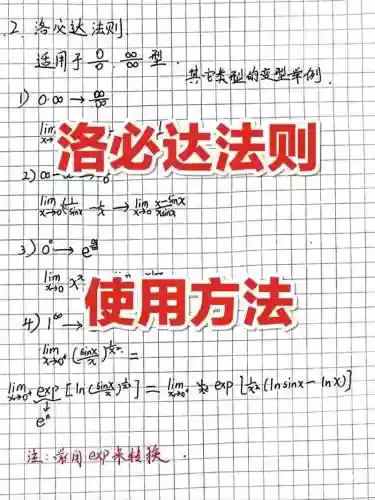 2. 洛必达法则
适用于 0/0, ∞/∞ 型.
其它类型的变型举例.
1) 0·∞ → ∞/∞
lim
洛必达法则
2) ∞-
lim x→0 1/sinx - 1/x → lim x→0 x-sinx/xsinx
3) 0⁰ →
lim x→0 xˣ
使用方法
4) 1^∞ →
lim x→0⁺ (sinx/x)^(1/x²) =
lim x→0⁺ exp [ln(sinx/x)^(1/x²)] = lim x→0⁺ exp [1/x² (lnsinx - lnx)]
↓
eⁿ
注: 常用exp来转换.